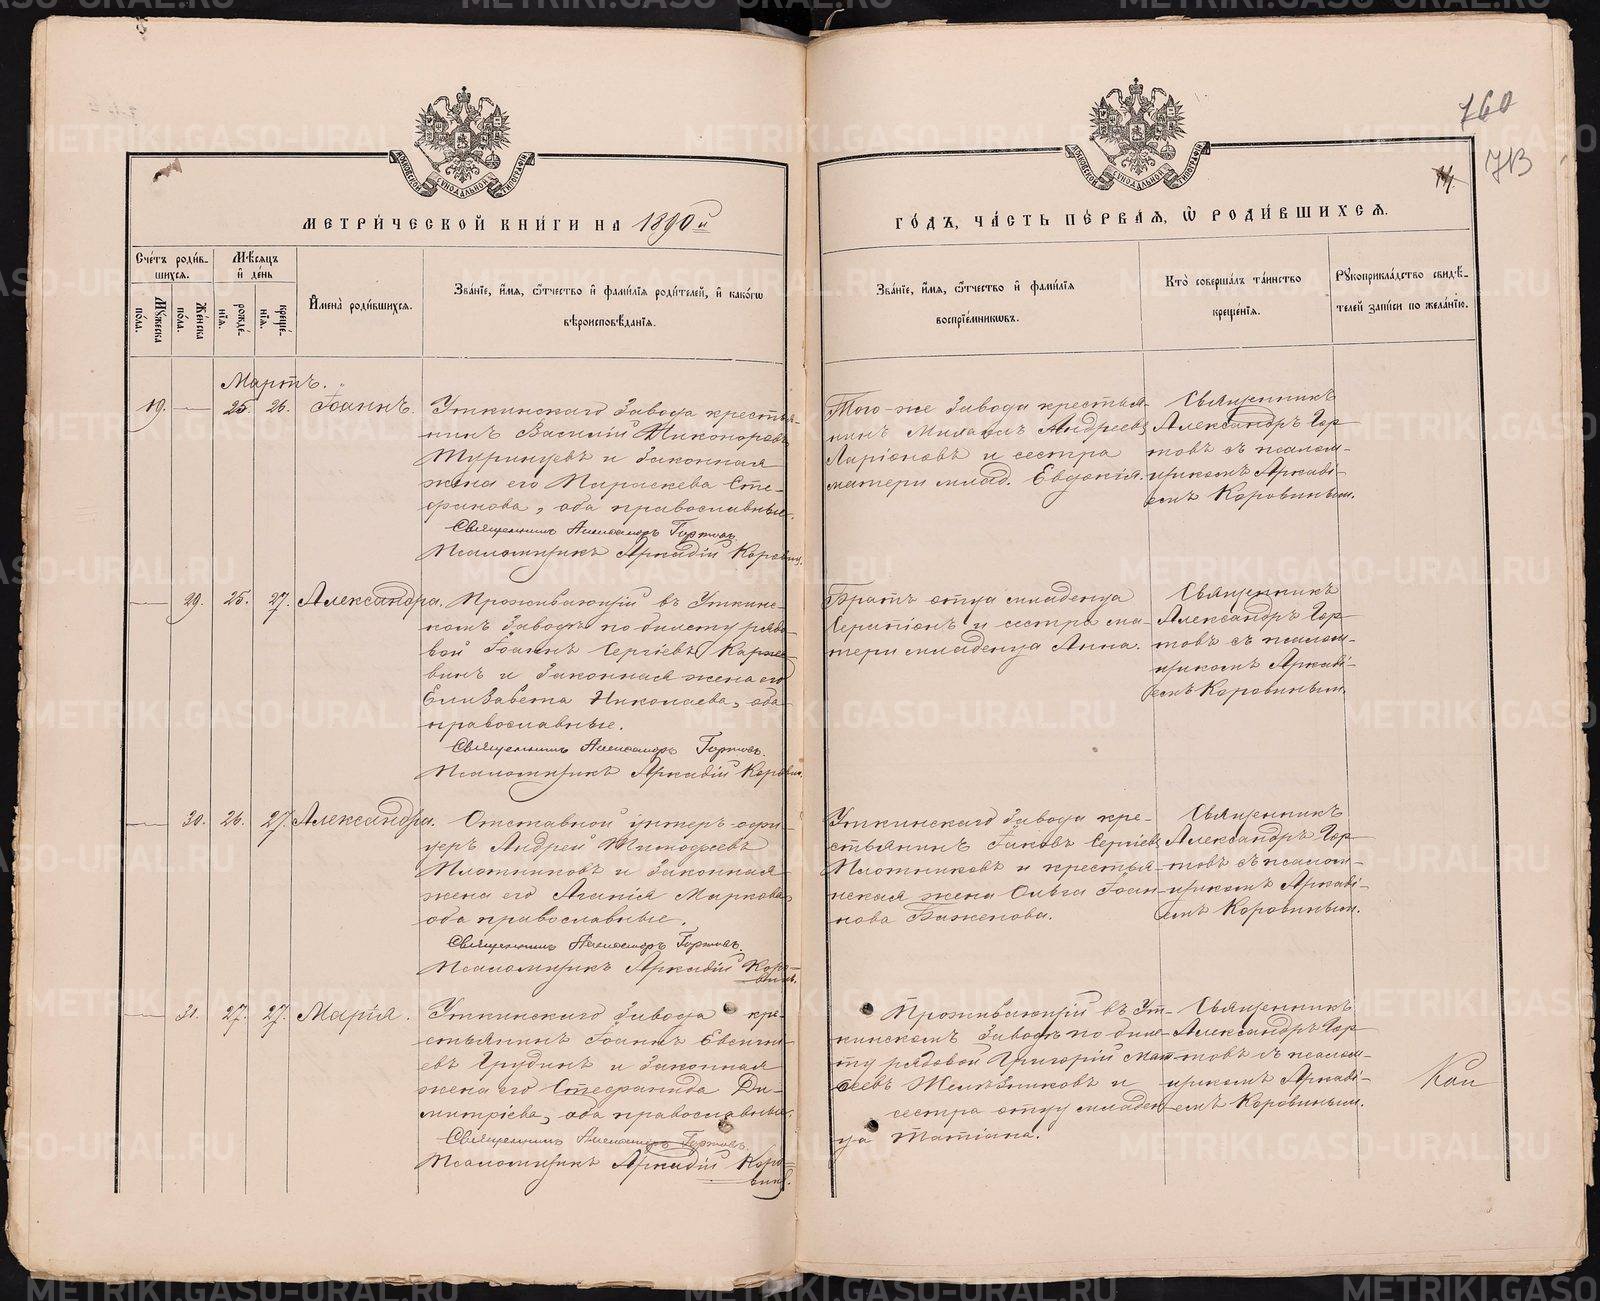 760
713
МОСКОВСКОЙ СѴНОДАЛЬНОЙ ТИПОГРАФІИ
МОСКОВСКОЙ СѴНОДАЛЬНОЙ ТИПОГРАФІИ
МЕТРИ́ЧЕСКОЙ КНИ́ГИ НА 1890й
ГО́ДЪ, ЧА́СТЬ ПЕ́РВАЯ, Ѡ҆ РОДИ́ВШИХСЯ.
Сче́тъ роди́в-
шихся.
Мꙋжеска по́ла.
Же́нска по́ла.
Мѣ́сяцъ
и҆ де́нь
рожде́-
нїя.
креще́-
нїя.
И҆мена̀ роди́вшихся.
Зва́нїе, и҆́мя, ѻ҆́тчество и҆ фами́лїя роди́телей, и҆ како́гѡ
вѣроисповѣ́данїя.
Зва́нїе, и҆́мя, ѻ҆́тчество и҆ фами́лїя
воспрїе́мникѡвъ.
Кто̀ соверша́лъ та́инство
креще́нїя.
Рꙋкоприкла́дство свидѣ́-
телей за́писи по жела́нїю.
Мартъ.
19. — 25. 26. Іоаннъ.
Уткинскаго завода крестья-
нинъ Василій Никоноровъ
Туринцевъ и законная
жена его Параскева Сте-
фанова, оба православные.
Священникъ Александръ Гортовъ.
Псаломщикъ Аркадій Коровинъ.
Того-же завода крестья-
нинъ Михаилъ Андреевъ
Ларіоновъ и сестра
матери млад. Евдокія.
Священникъ
Александръ Гор-
товъ съ псалом-
щикомъ Аркаді-
емъ Коровинымъ.
— 29. 25. 27. Александра.
Проживающій въ Уткинс-
комъ заводѣ по билету рядо-
вой Іоаннъ Сергіевъ
и законная жена его
Елизавета Николаева, оба
православные.
Священникъ Александръ Гортовъ.
Псаломщикъ Аркадій Коровинъ.
Братъ отца младенца
Серапіонъ и сестра ма-
тери младенца Анна.
Священникъ
Александръ Гор-
товъ съ псалом-
щикомъ Аркаді-
емъ Коровинымъ.
— 30. 26. 27. Александра.
Отставной унтеръ-офи-
церъ Андрей Тимофеевъ
Плотниковъ и законная
жена его Агапія Маркова,
оба православные.
Священникъ Александръ Гортовъ.
Псаломщикъ Аркадій Коро-
винъ.
Уткинскаго завода кре-
стьянинъ Іаковъ Сергіевъ
Плотниковъ и крестья-
нская жена Ольга Іоан-
нова Баженова.
Священникъ
Александръ Гор-
товъ съ псалом-
щикомъ Аркаді-
емъ Коровинымъ.
— 31. 27. 27. Марія.
Уткинскаго завода кре-
стьянинъ Іоаннъ Евсиги-
евъ Грудинъ и законная
жена его Стефанида Ди-
митріева, оба православные.
Священникъ Александръ Гортовъ.
Псаломщикъ Аркадій Коро-
винъ.
Проживающій въ Ут-
кинскомъ заводѣ по биле-
ту рядовой Григорій Мат-
ѳеевъ Желѣзниковъ и
сестра отцу младен-
ца Татіана.
Священникъ
Александръ Гор-
товъ съ псалом-
щикомъ Аркаді-
емъ Коровинымъ.